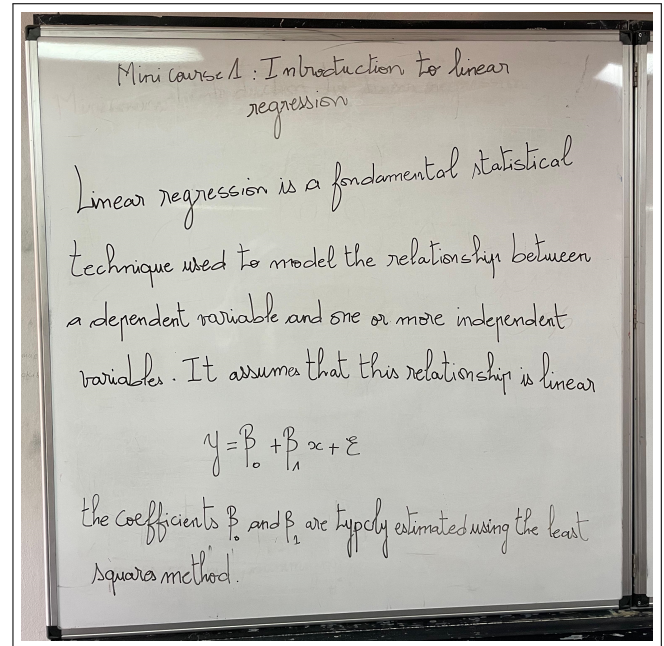 Mini course 1 : Introduction to linear
regression
Linear regression is a fondamental statistical
technique used to model the relationship between
a dependent variable and one or more independent
variables. It assumes that this relationship is linear
y = β₀ + β₁ x + ε
the coefficients β₀ and β₁ are typcly estimated using the least
squares method.